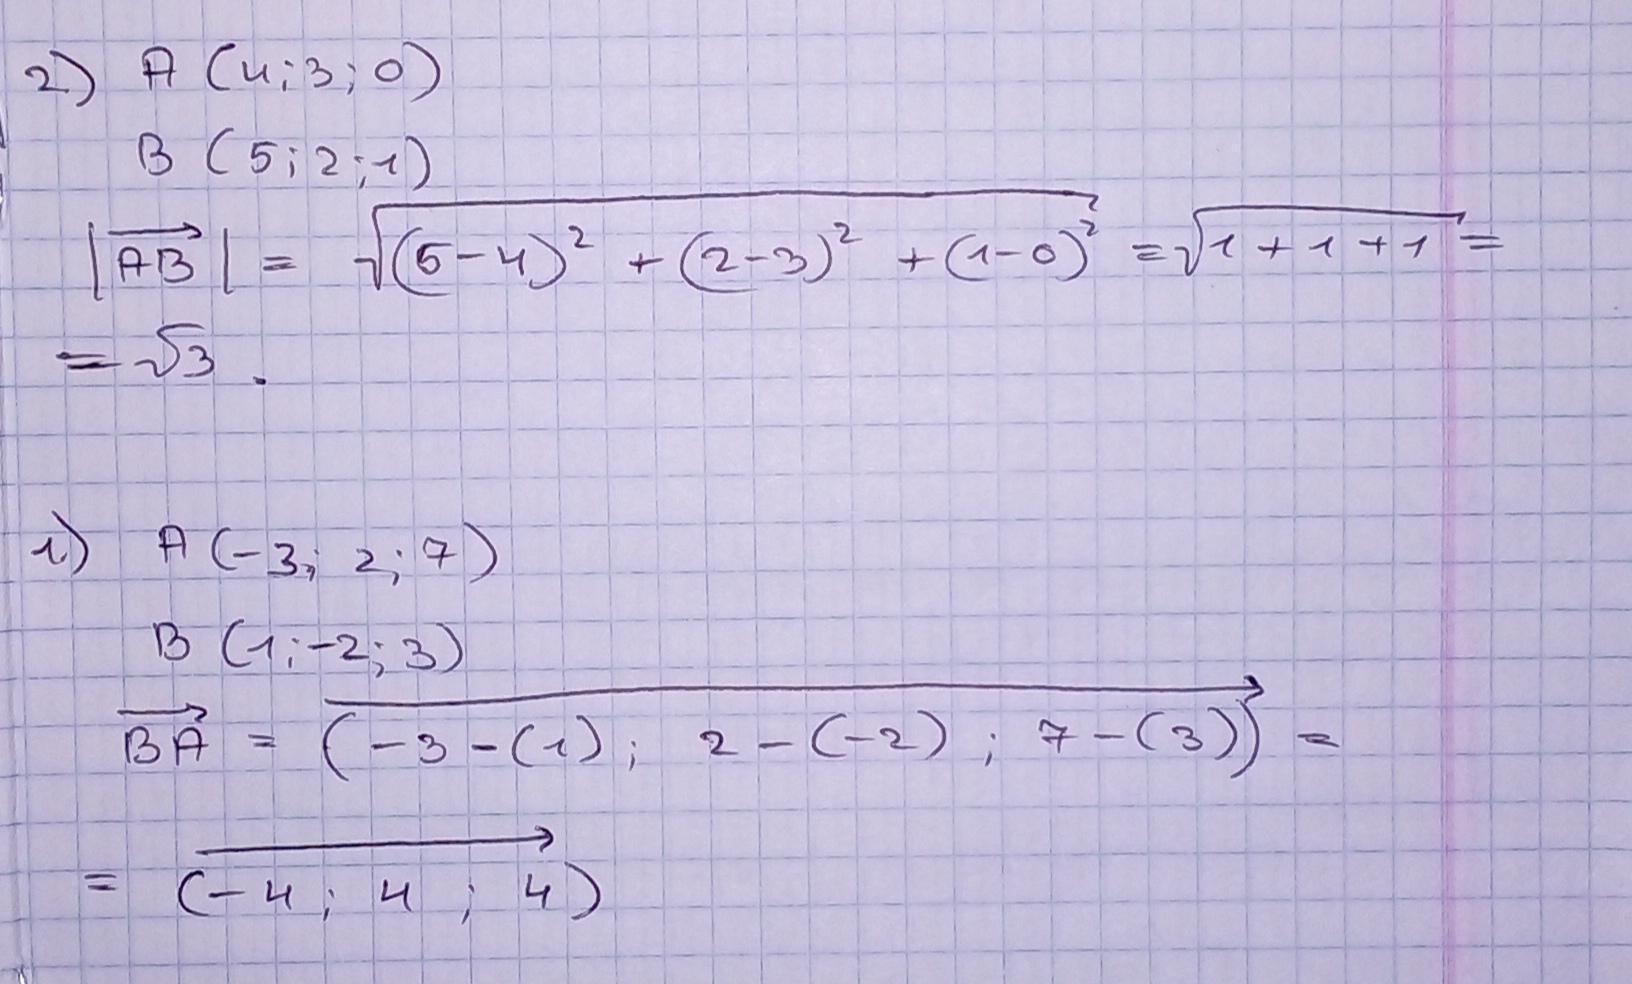 2) A (4; 3; 0)
B (5; 2; 1)
|\overrightarrow{AB}| = √((5-4)² + (2-3)² + (1-0)²) = √(1+1+1) =
= √3.
1) A (-3; 2; 7)
B (1; -2; 3)
\overrightarrow{BA} = \overrightarrow{(-3-(1); 2-(-2); 7-(3))} =
= \overrightarrow{(-4; 4; 4)}